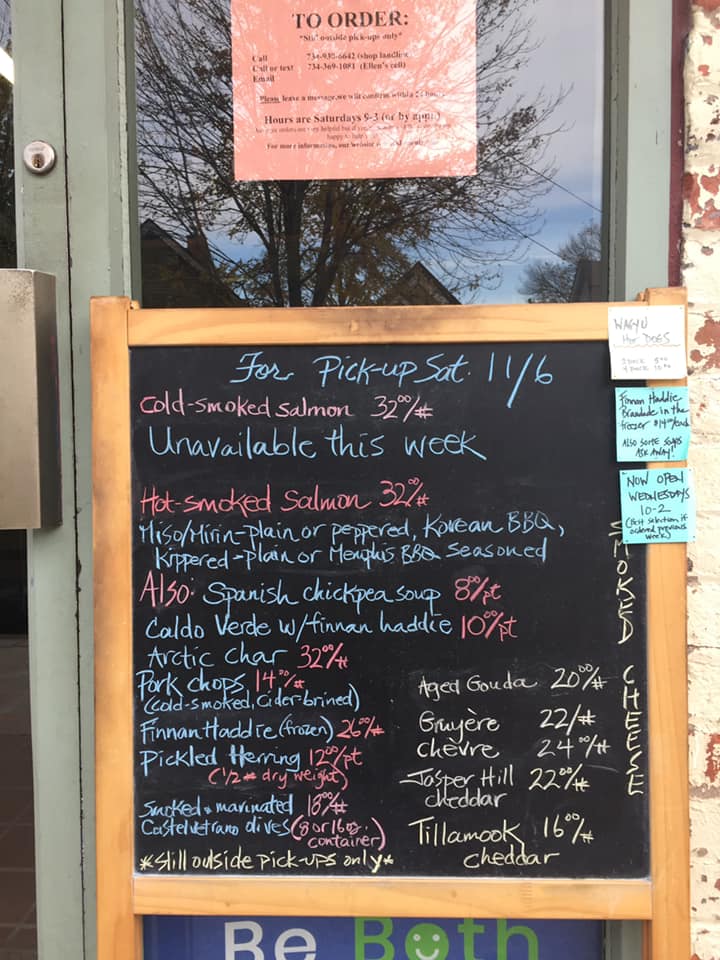 TO ORDER:
*Still outside pick-ups only*
Call 734-930-6642 (shop landline)
Call or text 734-369-1081 (Ellen's cell)
Email
Please leave a message, we will confirm within 24 hours
Hours are Saturdays 9-3 (or by appt.)
For more information, our website
For Pick-up Sat. 11/6
Cold-smoked salmon 32⁰⁰/#
Unavailable this week
Hot-smoked Salmon 32⁰⁰/#
Miso/Mirin-plain or peppered, Korean BBQ,
Kippered-plain or Memphis BBQ seasoned
Also: Spanish chickpea soup 8⁰⁰/pt
Caldo Verde w/finnan haddie 10⁰⁰/pt
Arctic Char 32⁰⁰/#
Pork chops 14⁰⁰/#
(cold-smoked, cider-brined)
Finnan Haddie (frozen) 26⁰⁰/#
Pickled Herring 12⁰⁰/pt
(1/2 # dry weight)
Smoked & marinated 18⁰⁰/#
Castelvetrano olives (8 or 16 oz. container)
*still outside pick-ups only*
SMOKED CHEESE
Aged Gouda 20⁰⁰/#
Gruyère 22/#
chèvre 24⁰⁰/#
Jasper Hill 22⁰⁰/#
cheddar
Tillamook 16⁰⁰/#
cheddar
WAGYU
HOT DOGS
Finnan Haddie
Brandade in the
freezer $14⁰⁰/each
Also some soups
ASK AWAY!
NOW OPEN
WEDNESDAYS
10-2
(Best selection if
ordered previous
week)
Be Both